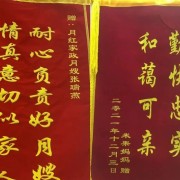 赠:月红家政月嫂张瑜燕
耐心负责好月嫂
情真意切以家人
勤快忠实
和蔼可亲
妈妈 赠
二零二一年十二月三日